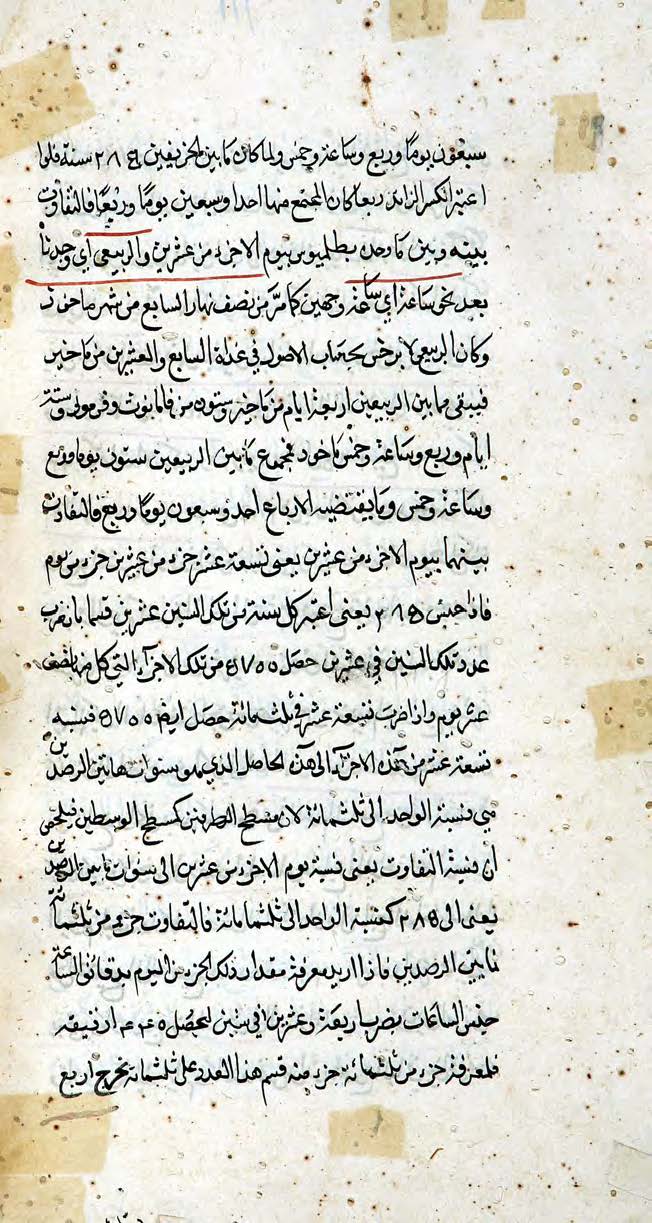 سبعون يوما وربع وساعة وخمس ولما كان ما بين الخريفين ٢٨٥ سنة فلوا
اعتبر الكسر الزايد ربعا كان المجتمع منها احدا وسبعين يوما وربعا فالتفاوت
بينه وبين ما وجده بطلميوس بيوم الا جزء من عشرين والربيعي اي وجدنا
بعد نحو ساعة اي ساعة وخمس كما مر من نصف نهار السابع من شهر ماخون
وكان الربيعي لابرخس بحساب الاصول في غداة السابع والعشرين من ماخير
فيبقى مما بين الربيعين اربعة ايام من ماخير وستون من فامانوث وفرموثى وستة
ايام وربع وساعة وخمس ماخون فمجموع ما بين الربيعين سبعون يوما وربع
وساعة وخمس وما يقتضيه الارباع احد وسبعون يوما وربع فالتفاوت
بينهما بيوم الا جزء من عشرين يعنى تسعة عشر جزء من عشرين جزء من يوم
فاذا جنس ٢٨٥ يعنى اعتبر كل سنة من تلك السنين عشرين قسما بان ضرب
عدد تلك السنين في عشرين حصل ٥٧٠٠ من تلك الاجزاء التي كل منها نصف
عشر يوم واذا ضرب تسعة عشر في ثلثمائة حصل ايضا ٥٧٠٠ فنسبة
تسعة عشر من هذه الاجزاء الى هذه الحاصل الذي هو سنوات هاتين الرصدين
هي نسبة الواحد الى ثلثمائة لان مسطح الطرفين كمسطح الوسطين
ان نسبة التفاوت يعنى نسبة يوم الا جزء من عشرين الى سنوات ما بين الرصدين
يعنى الى ٢٨٥ كنسبة الواحد الى ثلثمائة فالتفاوت جزء من ثلثمائة
مما بين الرصدين فاذا اريد معرفة مقدار ذلك الجزء من اليوم بدقائق الساعة
جنس الساعات بضرب اربعة وعشرين في ستين ليحصل ١٤٤٠ دقيقة
فلمعرفة جزء من ثلثمائة جزء منه قسم هذا العدد على ثلثمائة يخرج اربع